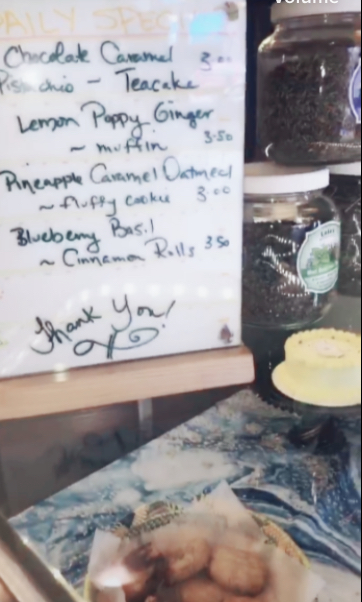 DAILY SPEC
Chocolate Caramel 3.00
Pistachio - Teacake
Lemon Poppy Ginger
~ muffin 3.50
Pineapple Caramel Oatmeal
~ fluffy cookie 3.00
Blueberry Basil
~ Cinnamon Rolls 3.50
Thank You!